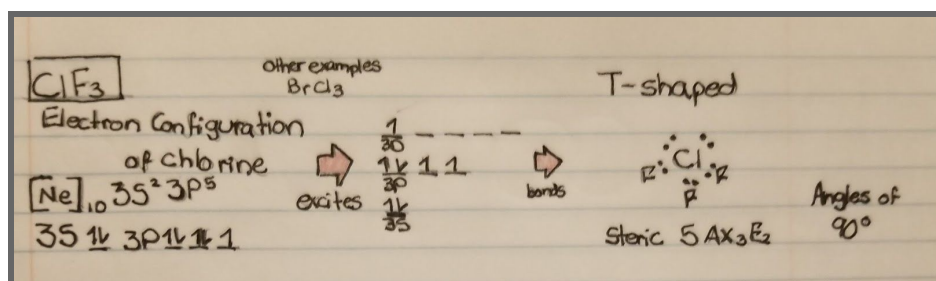 ClF₃
Other examples
BrCl₃
T-shaped
Electron Configuration
of chlorine
[Ne]₁₀ 3S² 3P⁵
3S 1↓ 3P 1↓ 1↓ 1
excites
1 _ _ _ _
3D
1↓ 1 1
3P
1↓
3S
bonds
Cl
F F
F
Steric 5 AX₃E₂
Angles of
90°